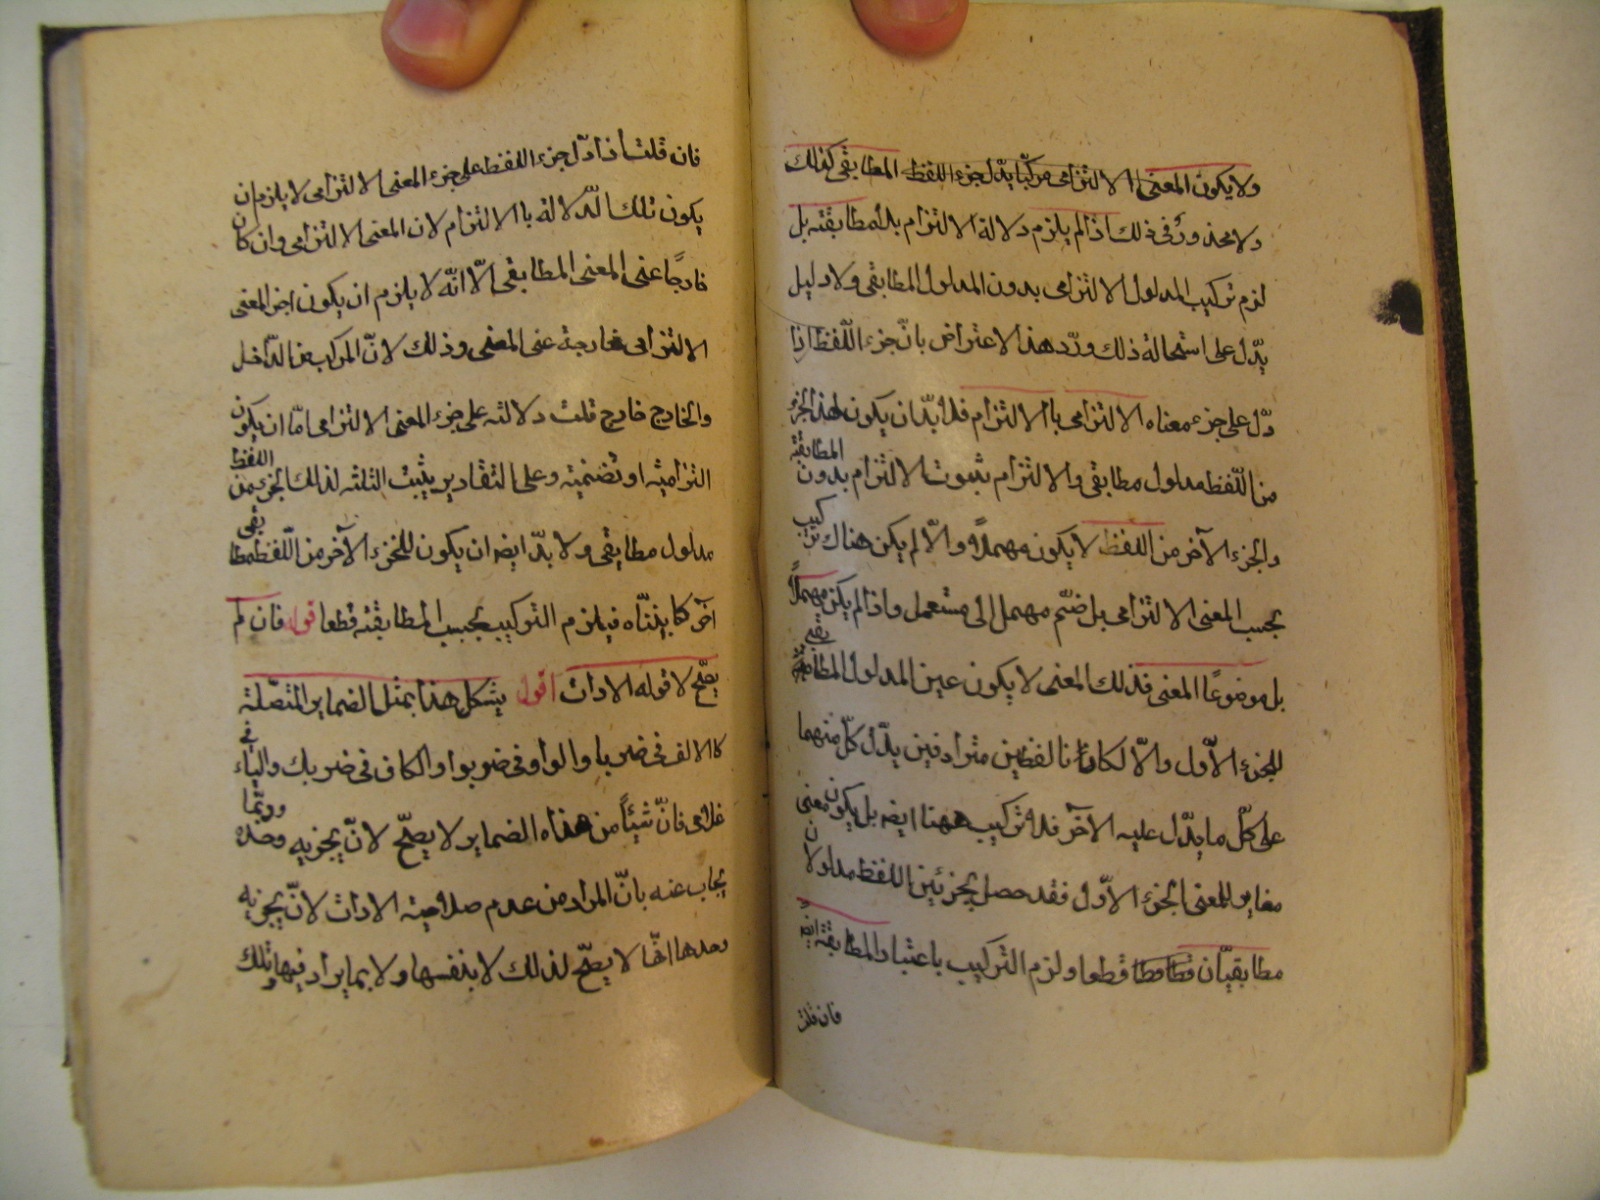 ولا يكون المعنى الالتزامى مركّبا يدّل جزء اللفظ المطابقى كذلك
ولا محذور فى ذلك اذ لم يلزم دلالة الالتزام بلا مطابقته بل
لزم تركيب المدلول الالتزامى بدون المدلول المطابقى ولا دليل
يدّل على استحالة ذلك وردّ هذا الاعتراض بانّ جزء اللّفظ اذا
دّل على جزء معناه الالتزامى باالالتزام فلا بدّ ان يكون لهذ الجزء
من اللّفظ مدلول مطابقى والالتزام بثبوت الالتزام بدون المطابقة
والجزء الآخر من اللفظ لا يكون مهملاً والّا لم يكن هناك تركيب
بحسب المعنى الالتزامى بل ضمّ مهمل الى مستعمل واذا لم يكن مهملاً
بل موضوعًا المعنى فذلك المعنى لا يكون عين المدلول المطابقى
للجزء الاّول والّا لكانا لفظين مترادفين يدّل كلّ منهما
على كلّ ما يدّل عليه الآخر فلا تركيب ههنا ايضه بل يكون معنى
مغاير للمعنى الجزء الاّول فقد حصل بجزئين اللفظ مدلولان
مطابقيّان قطعا ولزم التركيب باعتبار المطابقة ايضه
فان قلت
فان قلت اذا دّل جزء اللفظ على جزء المعنى الالتزامى لا يلزم ان
يكون تلك الدّلالة باالالتزام لان المعنى الالتزامى وان كان
خارجًا عنى المعنى المطابقى الّا انّه لا يلزم ان يكون اجزء المعنى
الالتزامى خارجة عنى المعنى وذلك لانّ المركب من الدّاخل
والخارج خارج قلت دلالته على جزء المعنى الالتزامى امّا ان يكون
التزاميّه او تضمنيّه وعلى التقادير يثبت الثلثه لذلك الجزء من اللفظ
مدلول مطابقى ولا بدّ ايضه ان يكون للجزء الآخر من اللّفظ مطابقى
آخر كا بيّنّاه فيلزم التركيب بحسب المطابقته قطعا قوله فان لم
يصّلح لا قوله الادات اقول يشكل هذا بمثل الضماير المتصّلة
كاالالف فى ضربا والواو فى ضربوا والكاف فى ضربك والياء فى
غلامى فانّ شيئاً من هذه الضماير لا يصّلح لانّ يخبر به وحده وربّما
يجاب عنه بانّ المراد من عدم صلاحيّة الادات لانّ يخبر به
وحدها انّها لا يصّلح لذلك لا بنفسها ولا بما يرادفها وتلك